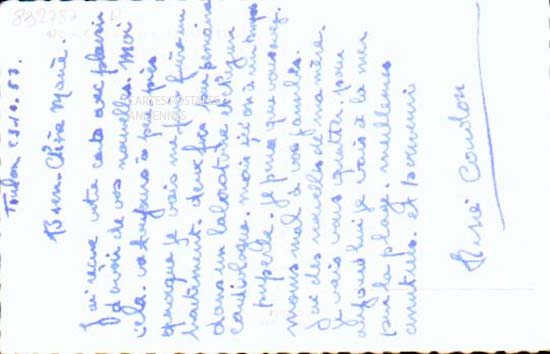 Toulon 23.10.57.
Bien Chère Marie.
J'ai reçue votre carte avec plaisir
d'avoir de vos nouvelles. Moi
cela va toujours à peu près
quoique je vais me faire faire un
traitement. deux fois par semaine
dans un laboratoire et chez un
cardiologue. mais ici on a un temps
superbe. Je pense que vous avez
moins mal à vos jambes.
J'ai des nouvelles de ma mère.
Je vais vous quitter. pour
aujourd'hui je vais à la mer
sur la plage. meilleures
amitiés. et souvenir
832757
CARTES POSTALES
ANCIENNES